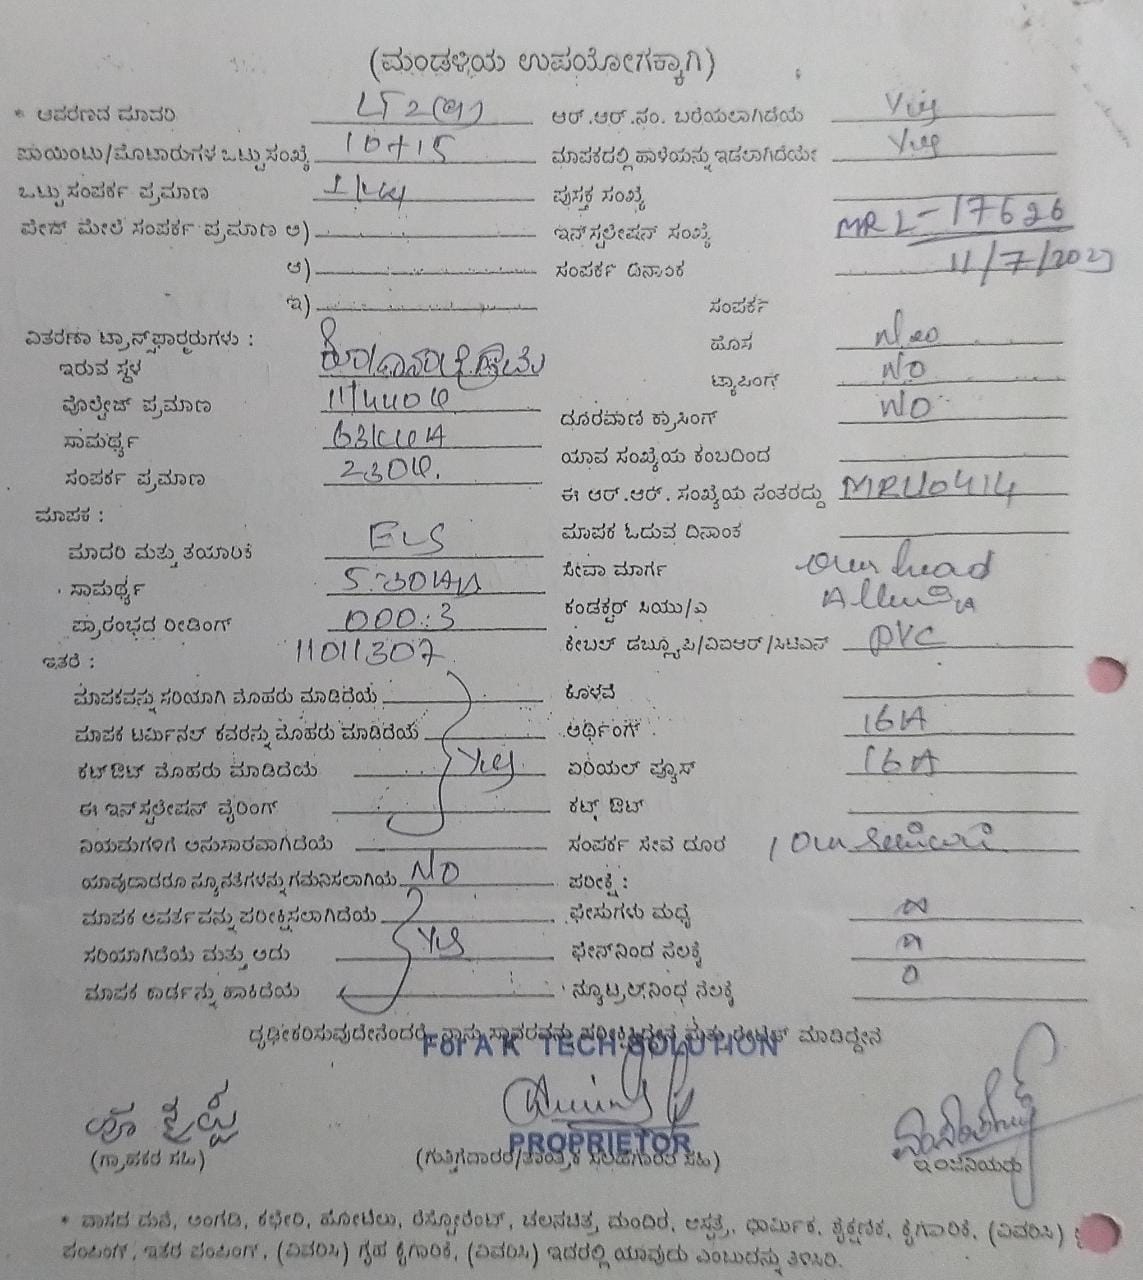 (ಮಂಡಳಿಯ ಉಪಯೋಗಕ್ಕಾಗಿ)
* ಆವರಣದ ಮಾದರಿ LT 2(a) ಆರ್.ಆರ್.ನಂ. ಬರೆಯಲಾಗಿದೆಯೆ Yes
ಪಾಯಿಂಟು/ಮೋಟಾರುಗಳ ಒಟ್ಟು ಸಂಖ್ಯೆ 10+15 ಮಾಪಕದಲ್ಲಿ ಹಾಳೆಯನ್ನು ಇಡಲಾಗಿದೆಯೇ Yes
ಒಟ್ಟು ಸಂಪರ್ಕ ಪ್ರಮಾಣ ಪುಸ್ತಕ ಸಂಖ್ಯೆ
ಪೇಜ್ ಮೇಲೆ ಸಂಪರ್ಕ ಪ್ರಮಾಣ ಅ) ಇನ್‌ಸ್ಟಲೇಷನ್ ಸಂಖ್ಯೆ MRL-17626
ಆ) ಸಂಪರ್ಕ ದಿನಾಂಕ 11/7/202
ಇ) ಸಂಪರ್ಕ
ವಿತರಣಾ ಟ್ರಾನ್ಸ್‌ಫಾರ್ಮರುಗಳು : ಹೊಸ
ಇರುವ ಸ್ಥಳ ಟ್ಯಾಪಿಂಗ್ NO
ವೊಲ್ಟೇಜ್ ಪ್ರಮಾಣ 11/440V ದೂರವಾಣಿ ಕ್ರಾಸಿಂಗ್ NO
ಸಾಮರ್ಥ್ಯ 63KVA ಯಾವ ಸಂಖ್ಯೆಯ ಕಂಬದಿಂದ
ಸಂಪರ್ಕ ಪ್ರಮಾಣ 230V. ಈ ಆರ್.ಆರ್. ಸಂಖ್ಯೆಯ ನಂತರದ್ದು MRL10414
ಮಾಪಕ : ಮಾಪಕ ಓದುವ ದಿನಾಂಕ
ಮಾದರಿ ಮತ್ತು ತಯಾರಿಕೆ ಸೇವಾ ಮಾರ್ಗ Over head
ಸಾಮರ್ಥ್ಯ ಕಂಡಕ್ಟರ್ ಸಿಯು/ಎ
ಪ್ರಾರಂಭದ ರೀಡಿಂಗ್ 000.3 ಕೇಬಲ್ ಡಬ್ಲ್ಯೂಪಿ/ವಿಐಆರ್/ಸಿಟಿಎಸ್ PVC
ಇತರೆ : 11011307
ಮಾಪಕವನ್ನು ಸರಿಯಾಗಿ ಮೊಹರು ಮಾಡಿದೆಯೆ ಕೊಳವೆ
ಮಾಪಕ ಟರ್ಮಿನಲ್ ಕವರನ್ನು ಮೊಹರು ಮಾಡಿದೆಯೆ ಅರ್ಥಿಂಗ್ 16A
ಕಟ್‌ಔಟ್ ಮೊಹರು ಮಾಡಿದೆಯೆ Yes ಏರಿಯಲ್ ಫ್ಯೂಸ್ 16A
ಈ ಇನ್‌ಸ್ಟಲೇಷನ್ ವೈರಿಂಗ್ ಕಟ್ಟ್ ಔಟ್
ನಿಯಮಗಳಿಗೆ ಅನುಸಾರವಾಗಿದೆಯೆ ಸಂಪರ್ಕ ಸೇವೆ ದೂರ
ಯಾವುದಾದರೂ ನ್ಯೂನತೆಗಳನ್ನು ಗಮನಿಸಲಾಗಿಯೆ NO ಪರೀಕ್ಷೆ :
ಮಾಪಕ ಆವರ್ತವನ್ನು ಪರೀಕ್ಷಿಸಲಾಗಿದೆಯೆ ಫೇಸುಗಳು ಮಧ್ಯೆ
ಸರಿಯಾಗಿದೆಯೆ ಮತ್ತು ಅದು Yes ಫೇಸ್‌ನಿಂದ ನೆಲಕ್ಕೆ
ಮಾಪಕ ಕಾರ್ಡನ್ನು ಹಾಕಿದೆಯೆ ನ್ಯೂಟ್ರಲ್‌ನಿಂಧ ನೆಲಕ್ಕೆ 0
ದೃಢೀಕರಿಸುವುದೇನೆಂದರೆ, ನಾನು ಸ್ಥಾವರವನ್ನು ಪರೀಕ್ಷಿಸಿದ್ದೇನೆ ಮತ್ತು ಮಾಡಿದ್ದೇನೆ
For A K TECH SOLUTION
PROPRIETOR
(ಗ್ರಾಹಕರ ಸಹಿ) (ಗುತ್ತಿಗೆದಾರರ/ತಾಂತ್ರಿಕ ಸಲಹೆಗಾರರ ಸಹಿ) ಇಂಜಿನಿಯರು
* ವಾಸದ ಮನೆ, ಅಂಗಡಿ, ಕಛೇರಿ, ಹೋಟೆಲು, ರೆಸ್ಟೋರೆಂಟ್, ಚಲನಚಿತ್ರ, ಮಂದಿರ, ಆಸ್ಪತ್ರೆ, ಧಾರ್ಮಿಕ, ಶೈಕ್ಷಣಿಕ, ಕೈಗಾರಿಕೆ, (ವಿವರಿಸಿ)
ಪಂಪಿಂಗ್, ಇತರ ಪಂಪಿಂಗ್, (ವಿವರಿಸಿ) ಗೃಹ ಕೈಗಾರಿಕೆ, (ವಿವರಿಸಿ) ಇದರಲ್ಲಿ ಯಾವುದು ಎಂಬುದನ್ನು ತಿಳಿಸಿರಿ.